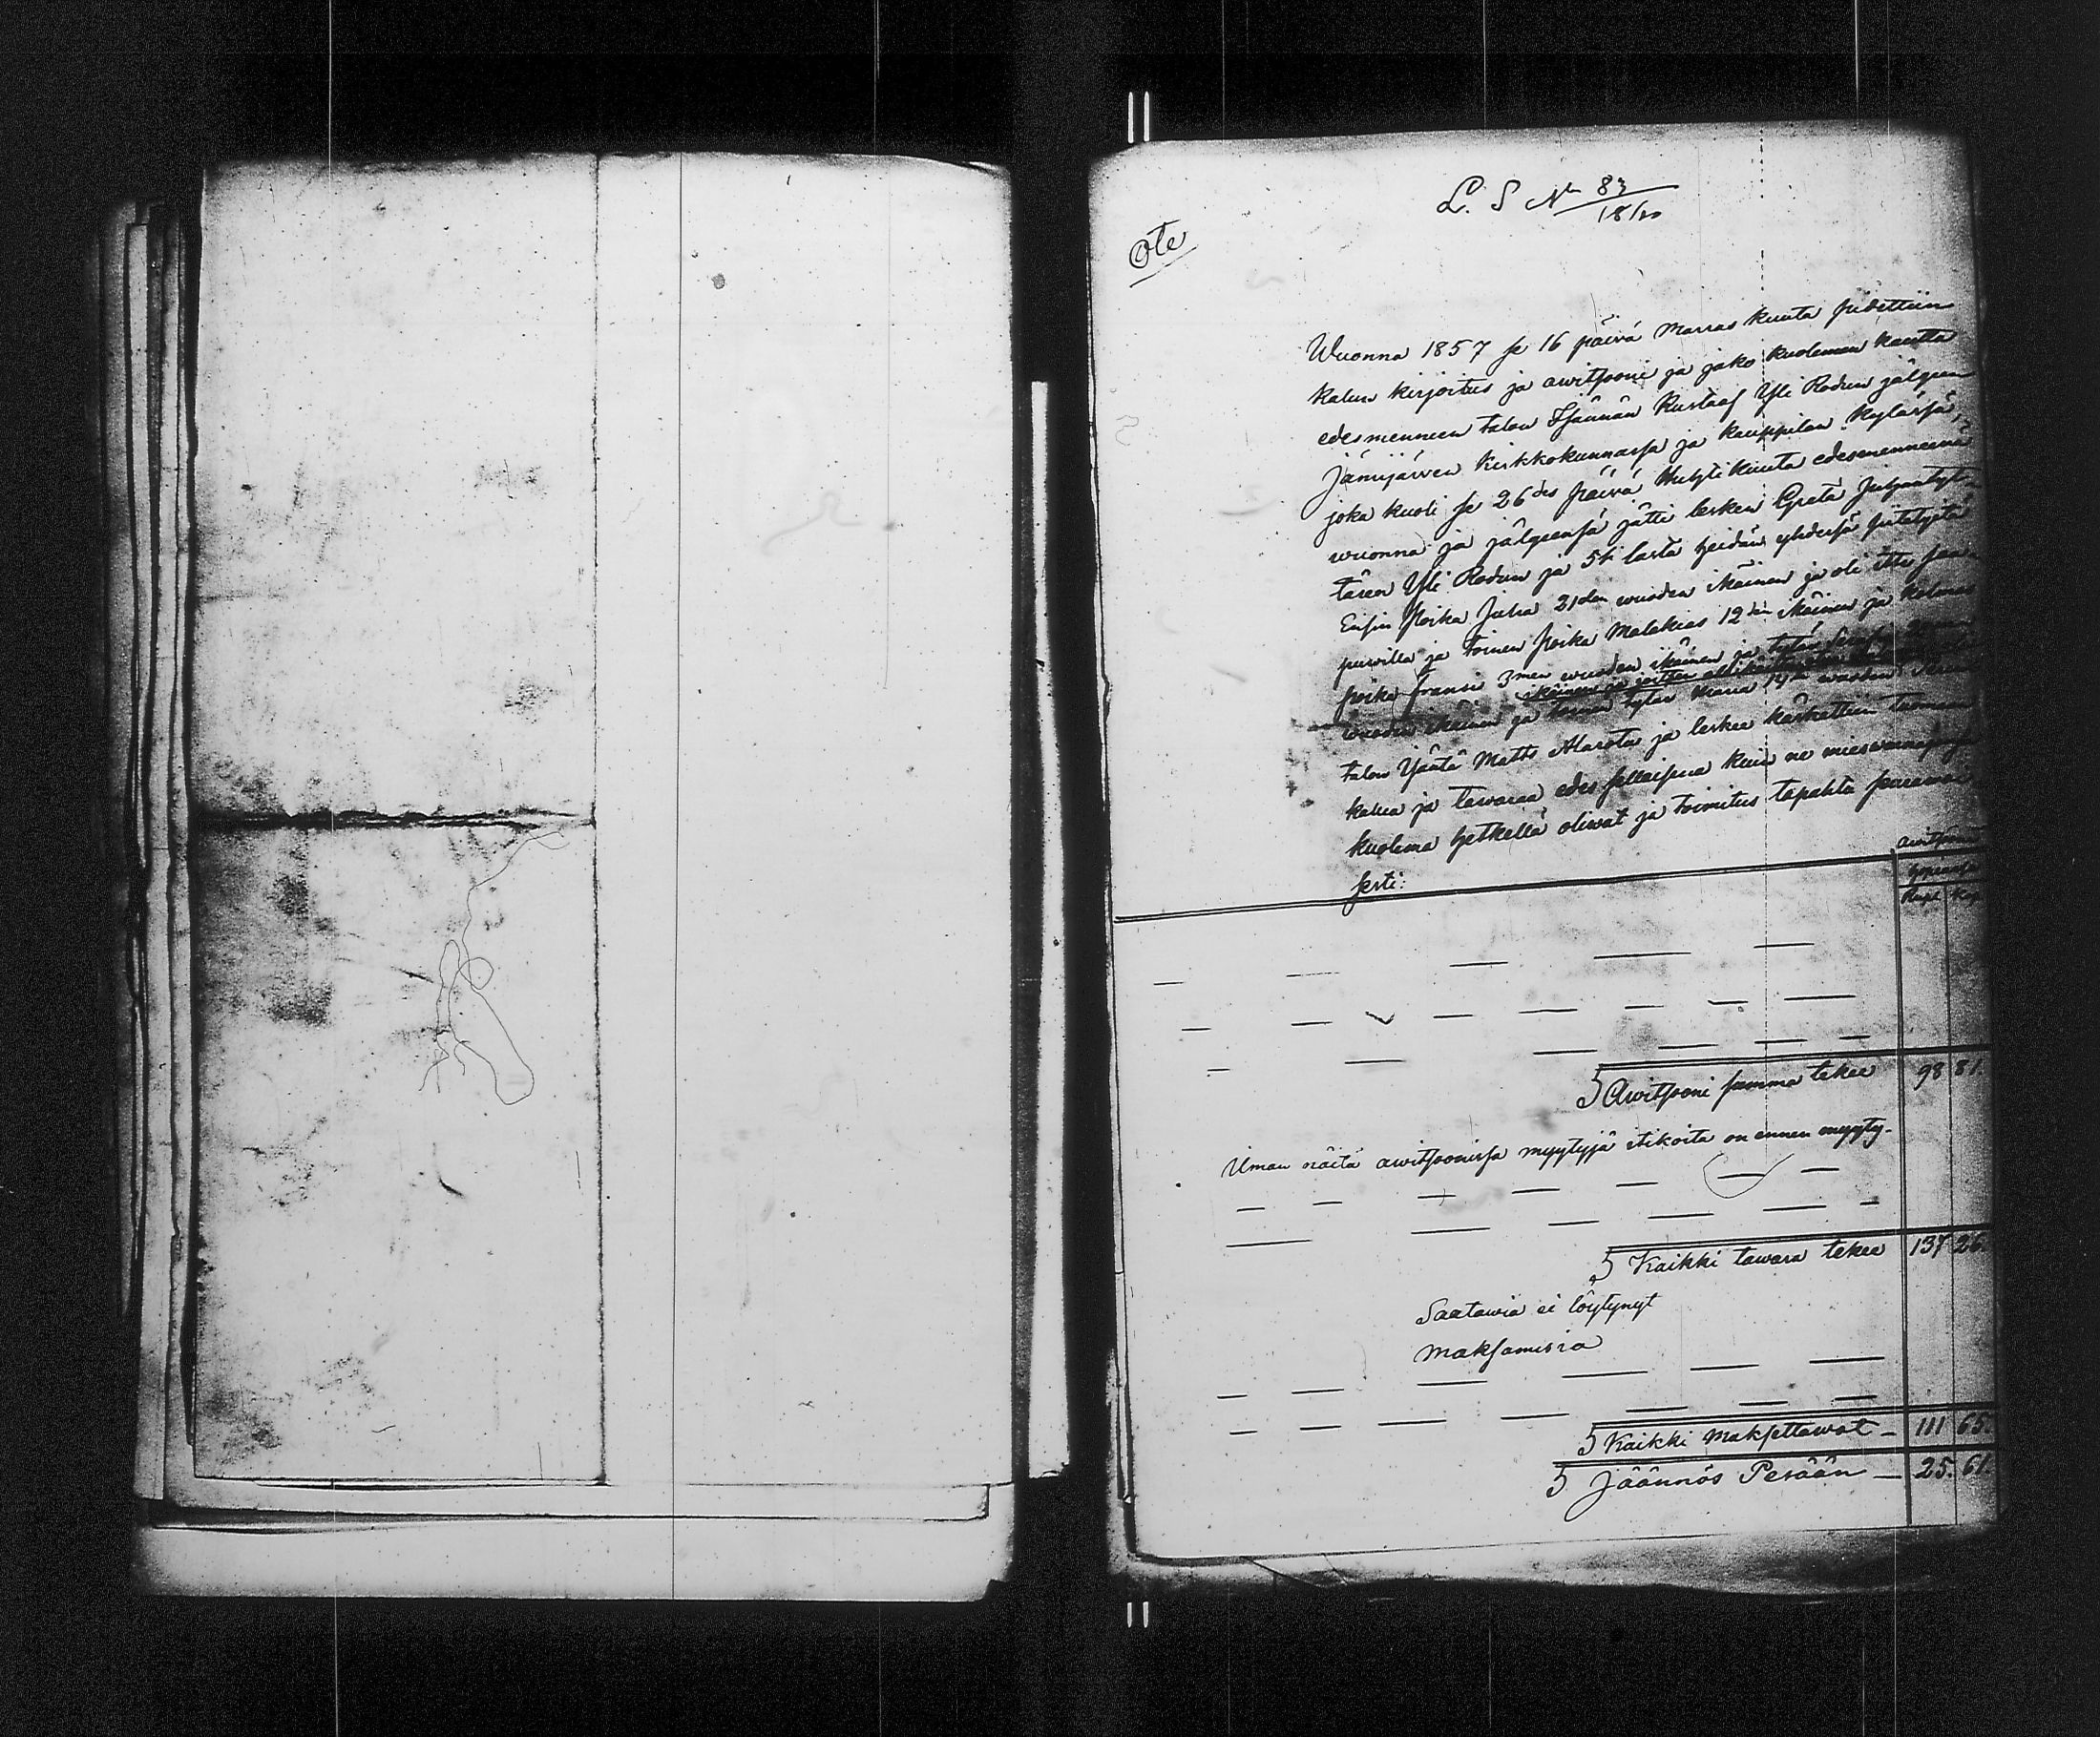 L. S. No 83
18/20
Ote
Wuonna 1857 se 16 päivä Marras kuuta pidettiin
kalun kirjoitus ja awitsooni ja jako kuoleman kautta
edesmenneen talon Isännän Kustaaf Yli Rodun jälgeen
Jämijärwen Kirkkokunnassa ja Kauppilan Kylässä,
joka kuoli se 26des päivä Huhti kuuta edesmenneenä
wuonna ja jälgeensä jätti lesken Greta Juhantyt-
tären Yli Rodun ja 5ti lasta heidän yhdessä siitetyitä
Ensin Poika Juha 21den wuoden ikäinen ja oli itte saa
puwilla ja toinen Poika Malakias 12 ikäinen ja kolmas
poika Fransi 3men wuoden ikäinen ja tytär
ikäinen ja
wuoden ikäinen ja toinen tytär Maria wuoden
talon Isäntä Matts Alarotu ja leskee käskettiin tuomaan
kalua ja tawaraa edes sellaisena kuin ne mieswainajan
kuolema hetkellä oliwat ja toimitus tapahtu seuraawai
sesti:
awitsooni
hopeassa
Rupl Kop
5 Awitsooni summa tekee 98 81.
Uman näitä awitsoonissa myytyjä itikoita on ennen myyty-
5 Kaikki tawara tekee 137 26.
Saatawia ei löytynyt
Maksamisia
5 Kaikki Maksettawat - 111 65.
5 Jäännös Perään - 25. 61.